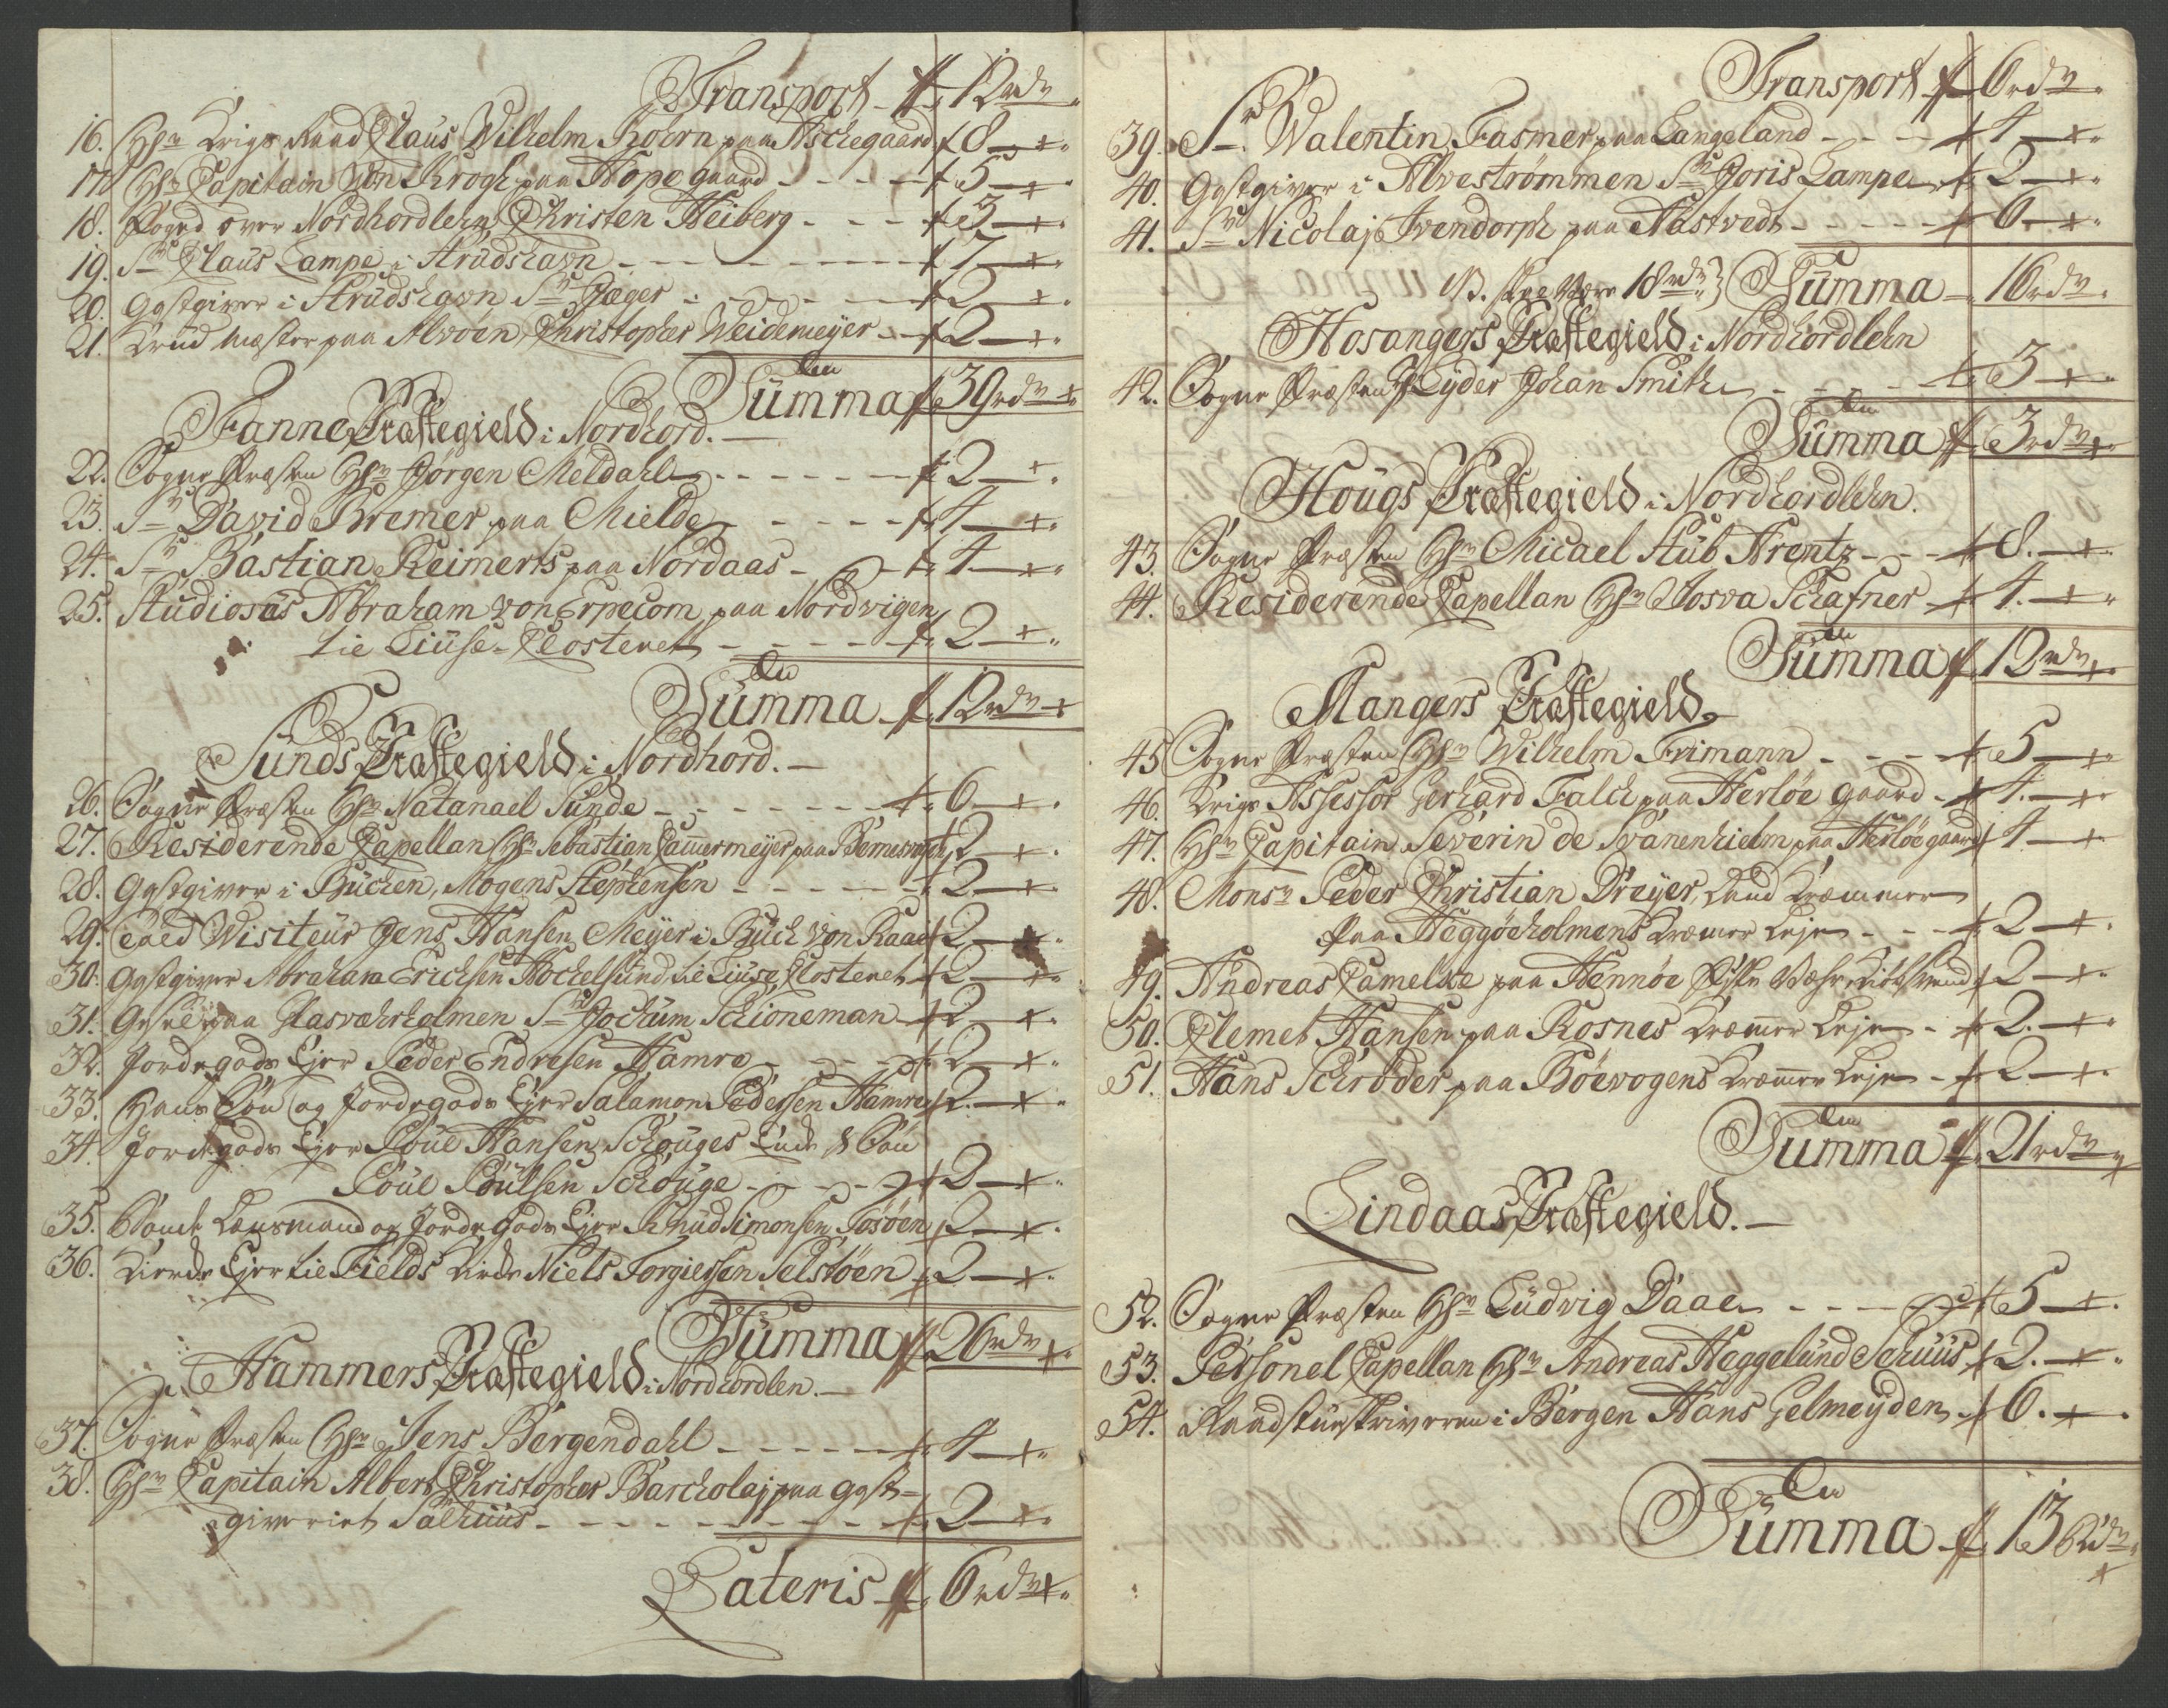 Transport 12 rdr
16. Hr. Krigs Raad Claus Wilhelm Koren paa Aschegaard 8
17. Hr. Capitain von Krogh paa Hope gaard 5
18. Foged over Nordhordlehn, Christen Heiberg 3
19. Sr. Claus Lampe i Strudshavn 7
20. Gestgiver i Strudshavn Sr. Jæger 2
21. Krud mæster paa Alvöen, Christopher Weidemeyer 2
Summa 39 rdr
Fanne Præstegield i Nordhord.
22. Sogne Præsten Hr. Jörgen Meldahl 2
23. Sr. David Bremer paa Mielde 4
24. Sr. Bastian Reimers paa Nordaas 4
25. Studiosus Abraham von Erpecom paa Nordvigen
til Liuse-Closteret 2
Summa 12 rdr
Sunds Præstegield i Nordhord.
26. Sogne Præsten Hr. Natanael Sunde 6
27. Residerende Capellan Hr. Sebastien Cammermeyer paa 2
28. Gestgiver i Buchen, Mogens Stephensen 2
29. Told Visiteur Jens Hansen Meyer i Buch von Raae 2
30. Gestgiver Abraham Erichsen Hochelsund til Liuse Closteret 2
31. paa Glasværholmen Sr. Jochum Schioneman 2
32. Jordegods Ejer Peder Endresen Hamre 2
33. Hans Sön og Jordegods Ejer Salamon Pedersen Hamre 2
34. Jordegods Ejer Poul Hansen Schouges & Sön
Poul Poulsen Schouge 2
35. Bonde Lensmand og Jorde Gods Ejer Knud Simonsen Tosöen 2
36. Kirke Ejer til Fields Kirke Niels Torgiersen Selstöen 2
Summa 26 rdr
Hammers Præstegield i Nordhordlen.
37. Sogne Præsten Hr. Jens Bergendahl 4
38. Hr. Capitain Albert Christopher Barcholaj paa gest-
giveriet Salhuus 2
Lateris 6 rdr
Transport 6 rdr
39. Sr. Walentin Fasmer paa Langeland 4
40. Gestgiver i Alvestrømmen Sr. Joris Lampe 2
41. Sr. Nicolaj Ivendorph paa Nastvedt 6
NB. skal være 18 rdr Summa 16 rdr
Hosangers Præstegield i Nordhordlehn
42. Sogne Præsten Hr. Eyder Johan Smith 3
Summa 3 rdr
Hougs Præstegield i Nordhordlehn.
43. Sogne Præsten Hr. Micael Stub Arentz 8.
44. Residerende Capellan Hr. Josva Schafner 4.
Summa 12 rdr
Mangers Præstegield
45 Sogne Præsten Hr. Wilhelm Frimann 5
46. Krigs Assessor Gerhard Falch paa Herlöe gaard 4.
47. Hr. Capitain Severin de Svanenhielm paa Herlöe gaard 4
48. Monsr. Peder Christian Dreyer, Land Kræmmer
paa Heggöeholmens Kræmer Leje 2
49. Andreas Camelke paa Hennöe 2
50. Clemet Hansen paa Rosnes Kræmer Leje 2.
51. Hans Schroder paa Böevogens Kræmer Leje 2
Summa 21 rdr
Lindaas Præstegield.
52. Sogne Præsten Hr. Ludvig Daae 5
53. Personel Capellan Hr. Andreas Heggelund Schiüs 2.
54. Raadstueskriveren i Bergen Hans Gelmeyden 6.
Summa 13 Rdr